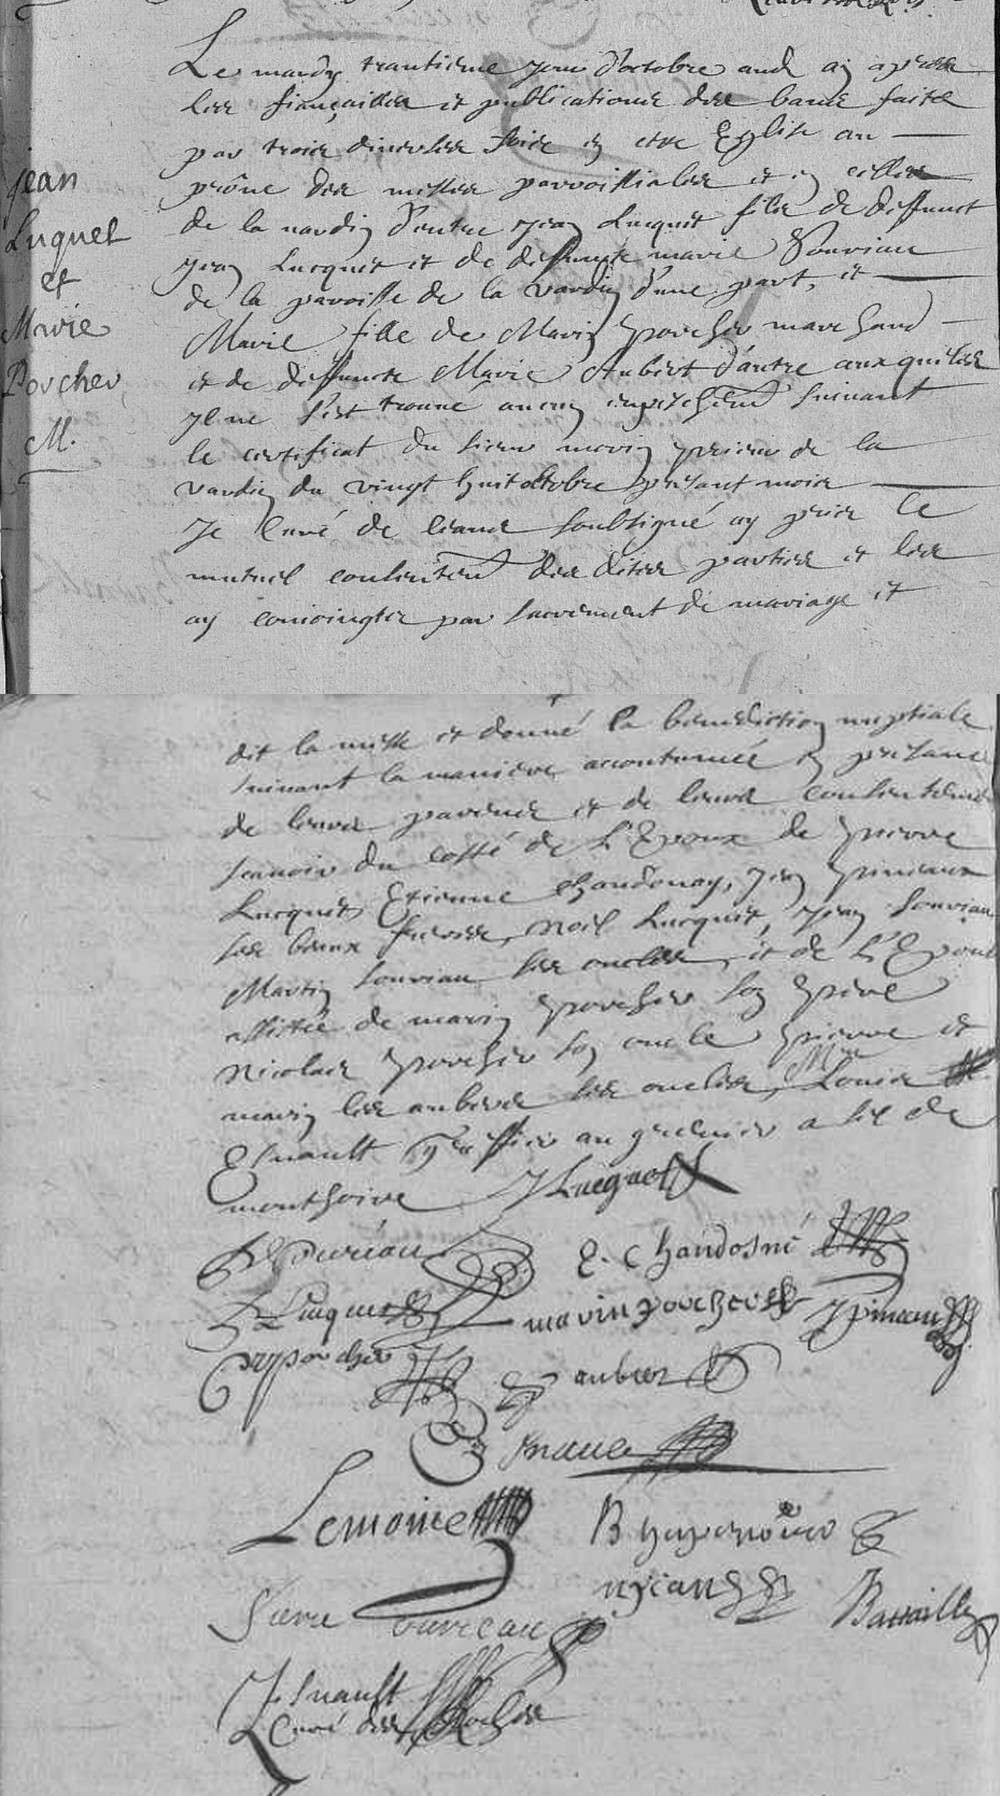 Jean
Luquet
et
Marie
Porcher
M.
Le mardy trantieme jour d'octobre aud an apres
les fiançailles et publications des bans faite
par trois diverses fois en cette Eglise au
prône des messes parroissiales et en celles
de la vardin d'entre jean Lucquet fils de deffunct
jean Lucquet et de deffuncte marie Souriau
de la paroisse de la vardin d'une part, et
Marie fille de Marin porcher marchand
et de deffuncte Marie Aubert d'autre auxquelles
yl ne s'est trouvé aucun empeschemt suivant
le certificat du sieur morin prieur de la
vardin du vingt huit octobre présant mois
Je curé de soubsigné ay pris le
mutuel consentemt des dites parties et les
ay conioingts par sacrement de mariage et
dit la messe et donné la benediction nuptiale
suivant la maniere accoutumée en presance
de leurs parens et de leurs consentemen
scavoir du costé de L'Epoux de pierre
Lucquet Etienne chaudonay, jean pineaux
ses beaux freres, Noël Lucquet, jean Souriau
Martin Souriau ses oncles, et de L'Epouse
assistée de marin porcher son pere
Nicolas porcher son oncle pierre et
marin les auberts ses oncles, Mre Louis
Esnault greffier au grenier a sel de
monthoire J Lucquet
E. Chaudosné
Lucquet marin porcher J pineau
porcher aubert
Esnault
Lemoine B
Bataille
Souriau
J. Esnault
Curé des Roches